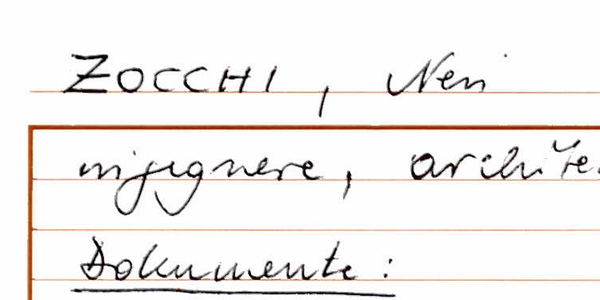 ZOCCHI, Neri
ingegnere, archite
Dokumente: